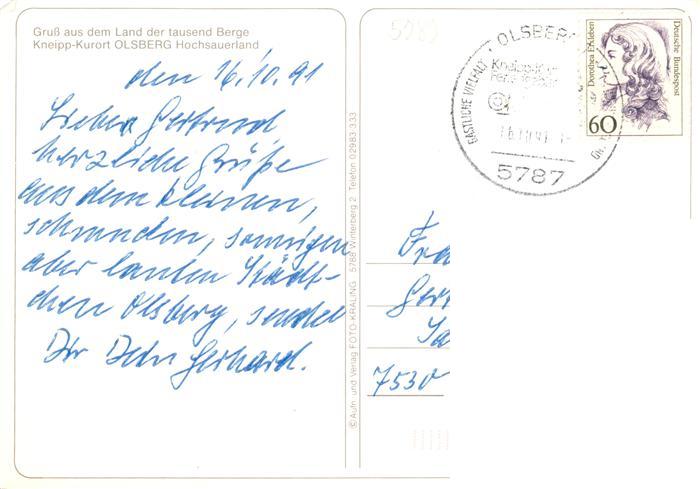 Gruß aus dem Land der tausend Berge
Kneipp-Kurort OLSBERG Hochsauerland
den 16.10.91
Liebe Gertrud
herzliche Grüße
aus dem kleinen,
schmucken, sonnigen
aber lauten Städt-
chen Olsberg, sendet
Dir Dein Gerhard.
© Aufn. und Verlag FOTO-KRALING 5788 Winterberg 2 Telefon 02983-333
5787
OLSBERG
GASTLICHE VIELFALT
5787
Dorothea Erxleben
Deutsche Bundespost
60
Fra
Ger
7530